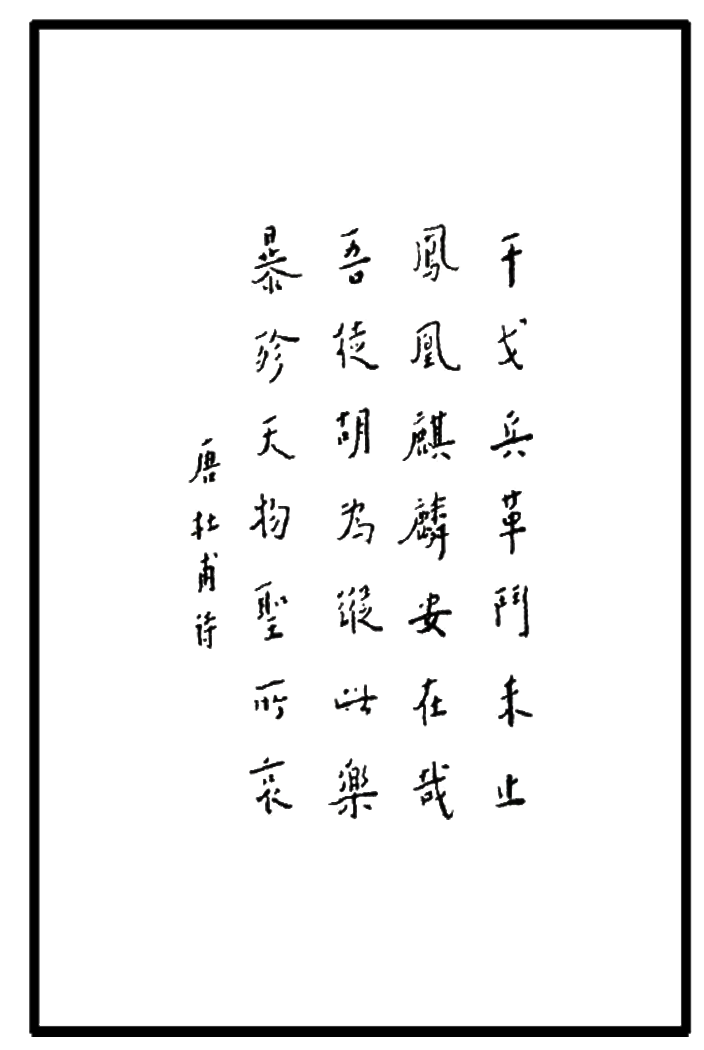 干戈兵革鬥未止
鳳凰麒麟安在哉
吾徒胡為縱此樂
暴殄天物聖所哀
唐杜甫诗